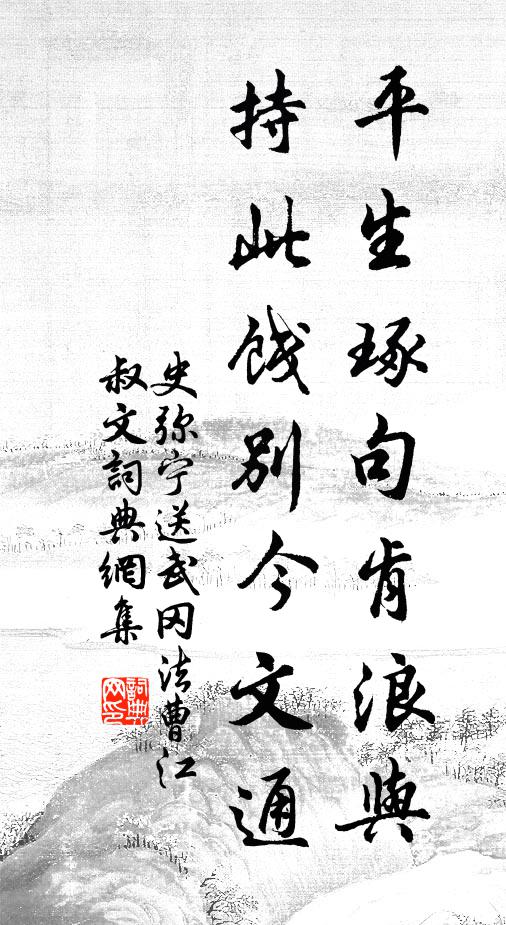 平生琢句肯浪與
持此餞別今文通
史弥宁送武冈法曹江
叔文詞典網集
詞典网印